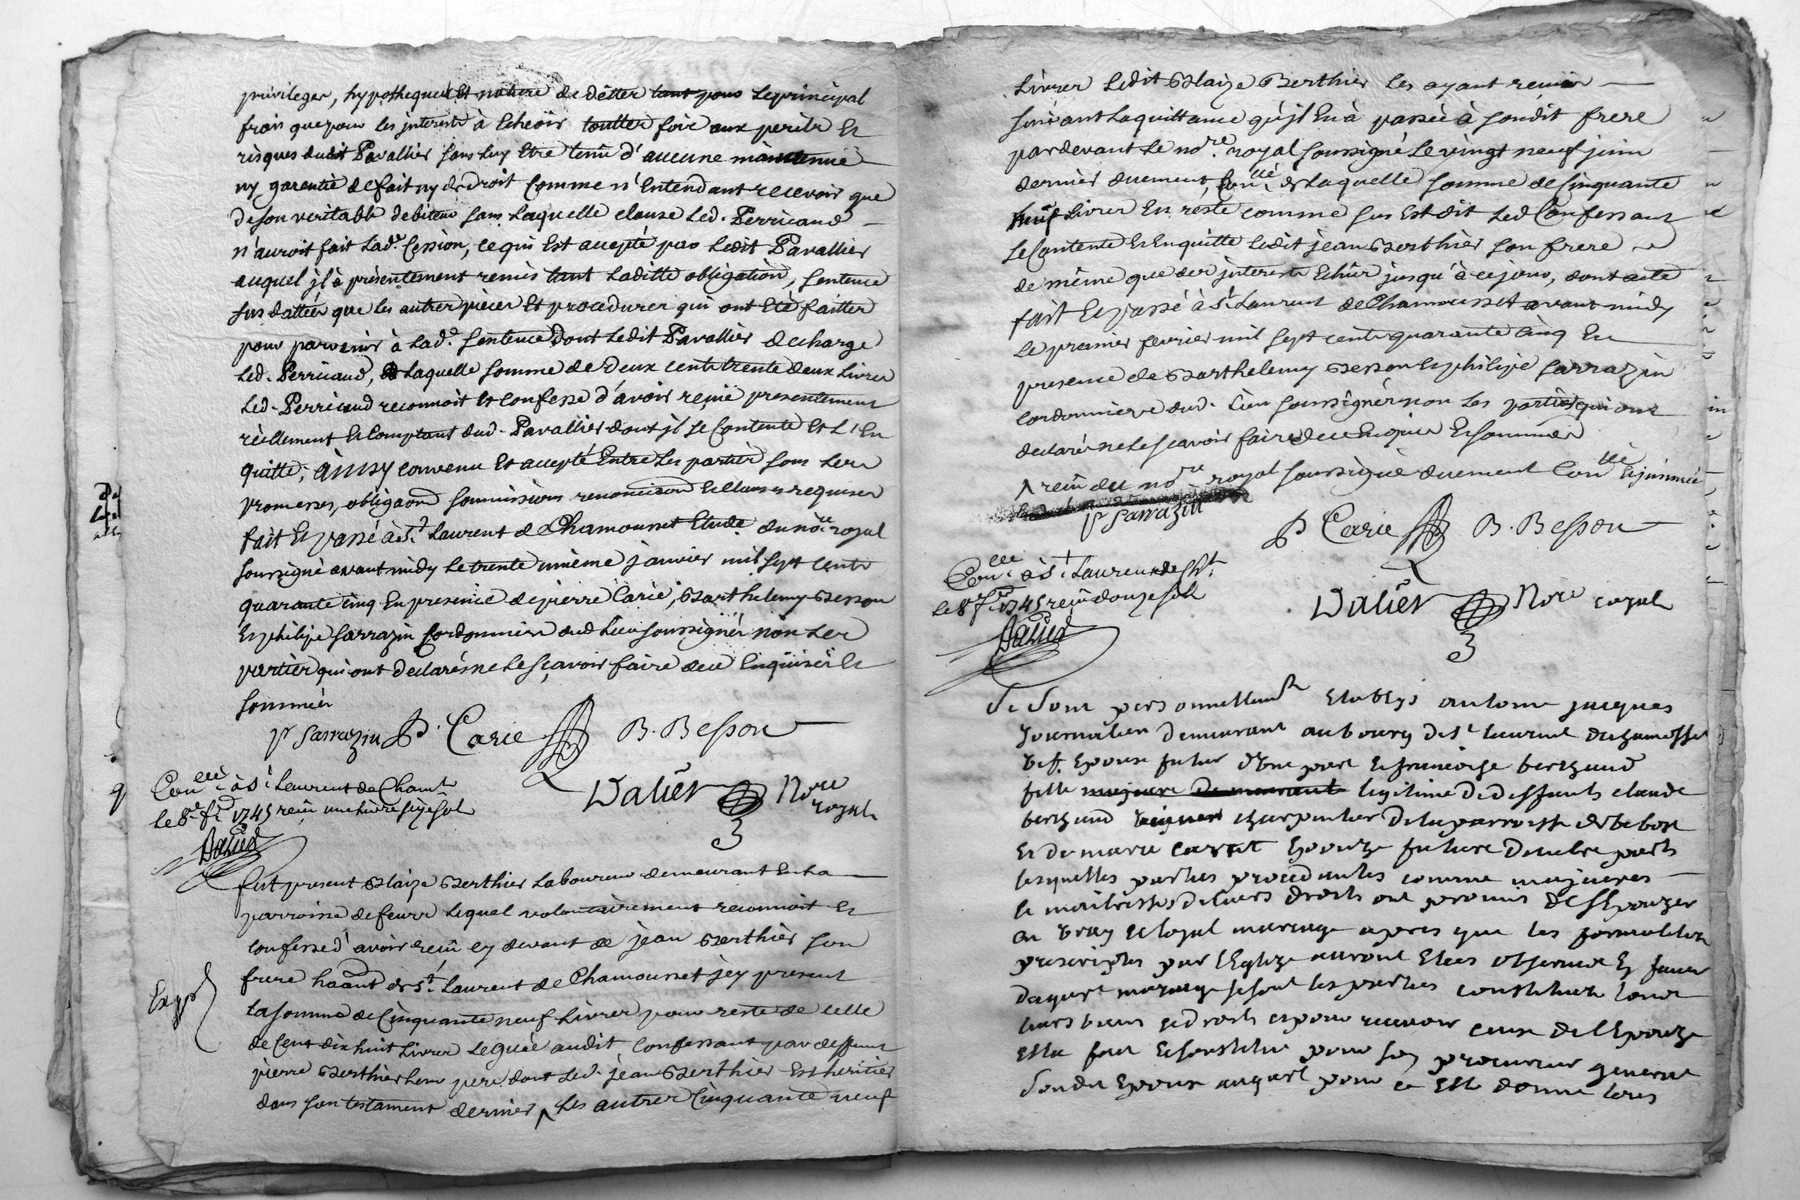 privileges, hypotheques et nature de dettes tant pour le principal
frais que pour les jnterests à Echeoir touttes fois aux perils Et
risques dudit Pavallier sans luy Etre tenu d'aucune maintenue
ny garentie de fait ny de droit Comme n'Entendant recevoir que
de son veritable debiteur sans laquelle clause led. Perricaud
n'auroit fait lad.e Cession, ce qui Est accepté par ledit Pavallier
auquel jl à présentement remis tant laditte obligation, sentence
sus dattéés que les autres pieces Et procedures qui ont Eté faittes
pour parvenir à lad.e sentence Dont ledit Pavallier decharge
led. Perricaud, laquelle somme de Deux cents trente deux livres
led. Perricaud reconnoit Et confesse d'avoir reçüe presentement
réellement Et Comptant dud. Pavallier dont jl se Contente Et l'En
quitte, ainsy convenu Et accepté Entre les parties sous leurs
promesses, obligaõns soumissions renonciaõns Et clauses requises
fait Et passé à S.t Laurent de Chamousset Etude du no.re royal
soussigné avant midy le trente unième janvier mil sept cents
quarante cinq En presence de pierre Carie, Barthelemy Besson
Et philipe Sarrazin Cordonniers dud. lieu soussignés non les
parties qui ont declarés ne le sçavoir faire de ce Enquises Et
sommées
P Sarrazin P. Carie B. Besson
Con.llé à S.t Laurent de Cham.t
le 8.e f.r 1745 reçu une livre seize sols
Dalier
Dalier Nore
royal
fut present Blaize Berthier laboureur demeurant En la
parroisse de feurs lequel volontairement reconnoit Et
confesse d'avoir reçu cy devant de jean Berthier son
frere haãnt de S.t Laurent de Chamousset jcy present
Exp.é
la somme de Cinquante neuf livres pour reste de celle
de Cent dix huit livres leguée audit Confessant par deffunt
pierre Berthier leur pere dont led. jean Berthier Est heritier
dans son testament dernier, les autres Cinquante neuf
livres ledit Blaize Berthier les ayant reçües
suivant la quittance qu'jl En à passée à sondit frere
pardevant le no.re royal soussigné le vingt neuf juin
dernier duement Con.llé, de laquelle somme de Cinquante
neuf livres En reste comme sus Est dit led. Confessant
se Contente Et En quitte ledit jean Berthier son frere
de même que des jnterests Echus jusqu'à ce jour, dont acte
fait Et passé à S.t Laurent de Chamousset avant midy
le premier fevrier mil sept cents quarante cinq En
presence de Barthelemy Besson Et philipe Sarrazin
cordonniers dud. lieu soussignés non les parties qui ont
declaré ne le sçavoir faire de ce Enquis Et sommés
reçu du no.re royal soussigné duement Con.llé
P Sarrazin
P Carie B. Besson
Con.llé à S.t Laurent de Ch.t
le 8.e f.r 1745 reçu douze sols
Dalier
Dalier Nore royal
Se Sont personnellem.t Etablys antoine jacques
journalier demeurant au bourg de S.t laurent de chamousset
Epoux futur d'une part Et françoise berthaud
fille legitime de deffunts claude
berthaud charpentier de la parroisse de
Et de marie Epouze future d'autre part
lesquelles parties procedantes comme majeures
Et maitresses de leurs droits ont promis de s'Epouzer
En vray Et loyal mariage apres que les formalités
prescriptes par l'Eglize auront Etées observées Et faveur
duquel mariage se sont les parties constituées tous
leurs biens Et droits Et pour recevoir ceux de l'Epouze
Elle fait Et constitue pour son procureur general
Sondit Epoux auquel pour ce Elle donne tous